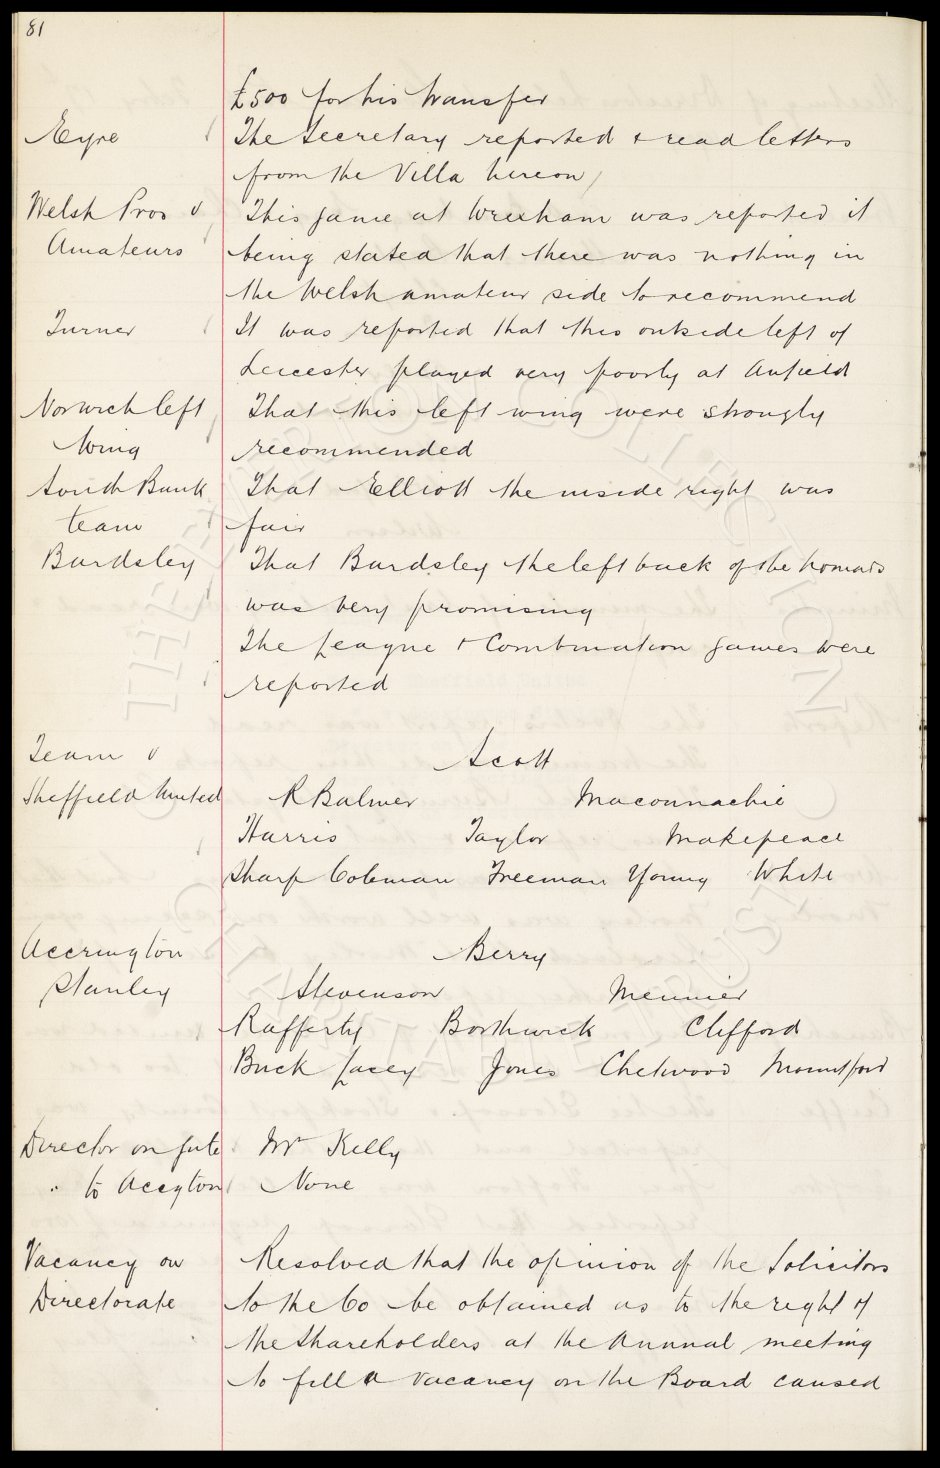 81
£500 for his transfer
Eyre The Secretary reported & read letters
from the Villa hereon
Welsh Pros v This game at Wrexham was reported it
Amateurs being stated that there was nothing in
the Welsh amateur side to recommend
Turner It was reported that this outside left of
Leicester played very poorly at Anfield
Norwich left That this left wing were strongly
Wing recommended
South Bank That Elliott the inside right was
team fair
Bardsley That Bardsley the left back of the Nomads
was very promising
The League & Combination games were
reported
Team v Scott
Sheffield United R Balmer Maconnachie
Harris Taylor Makepeace
Sharp Coleman Freeman Young White
Accrington Berry
Stanley Stevenson Meunier
Rafferty Borthwick Clifford
Buck Lacey Jones Chetwood Mountford
Director on gate Mr Kelly
" to Accyton None
Vacancy on Resolved that the opinion of the Solicitors
Directorate to the Co be obtained as to the right of
the Shareholders at the Annual meeting
to fill a vacancy on the Board caused